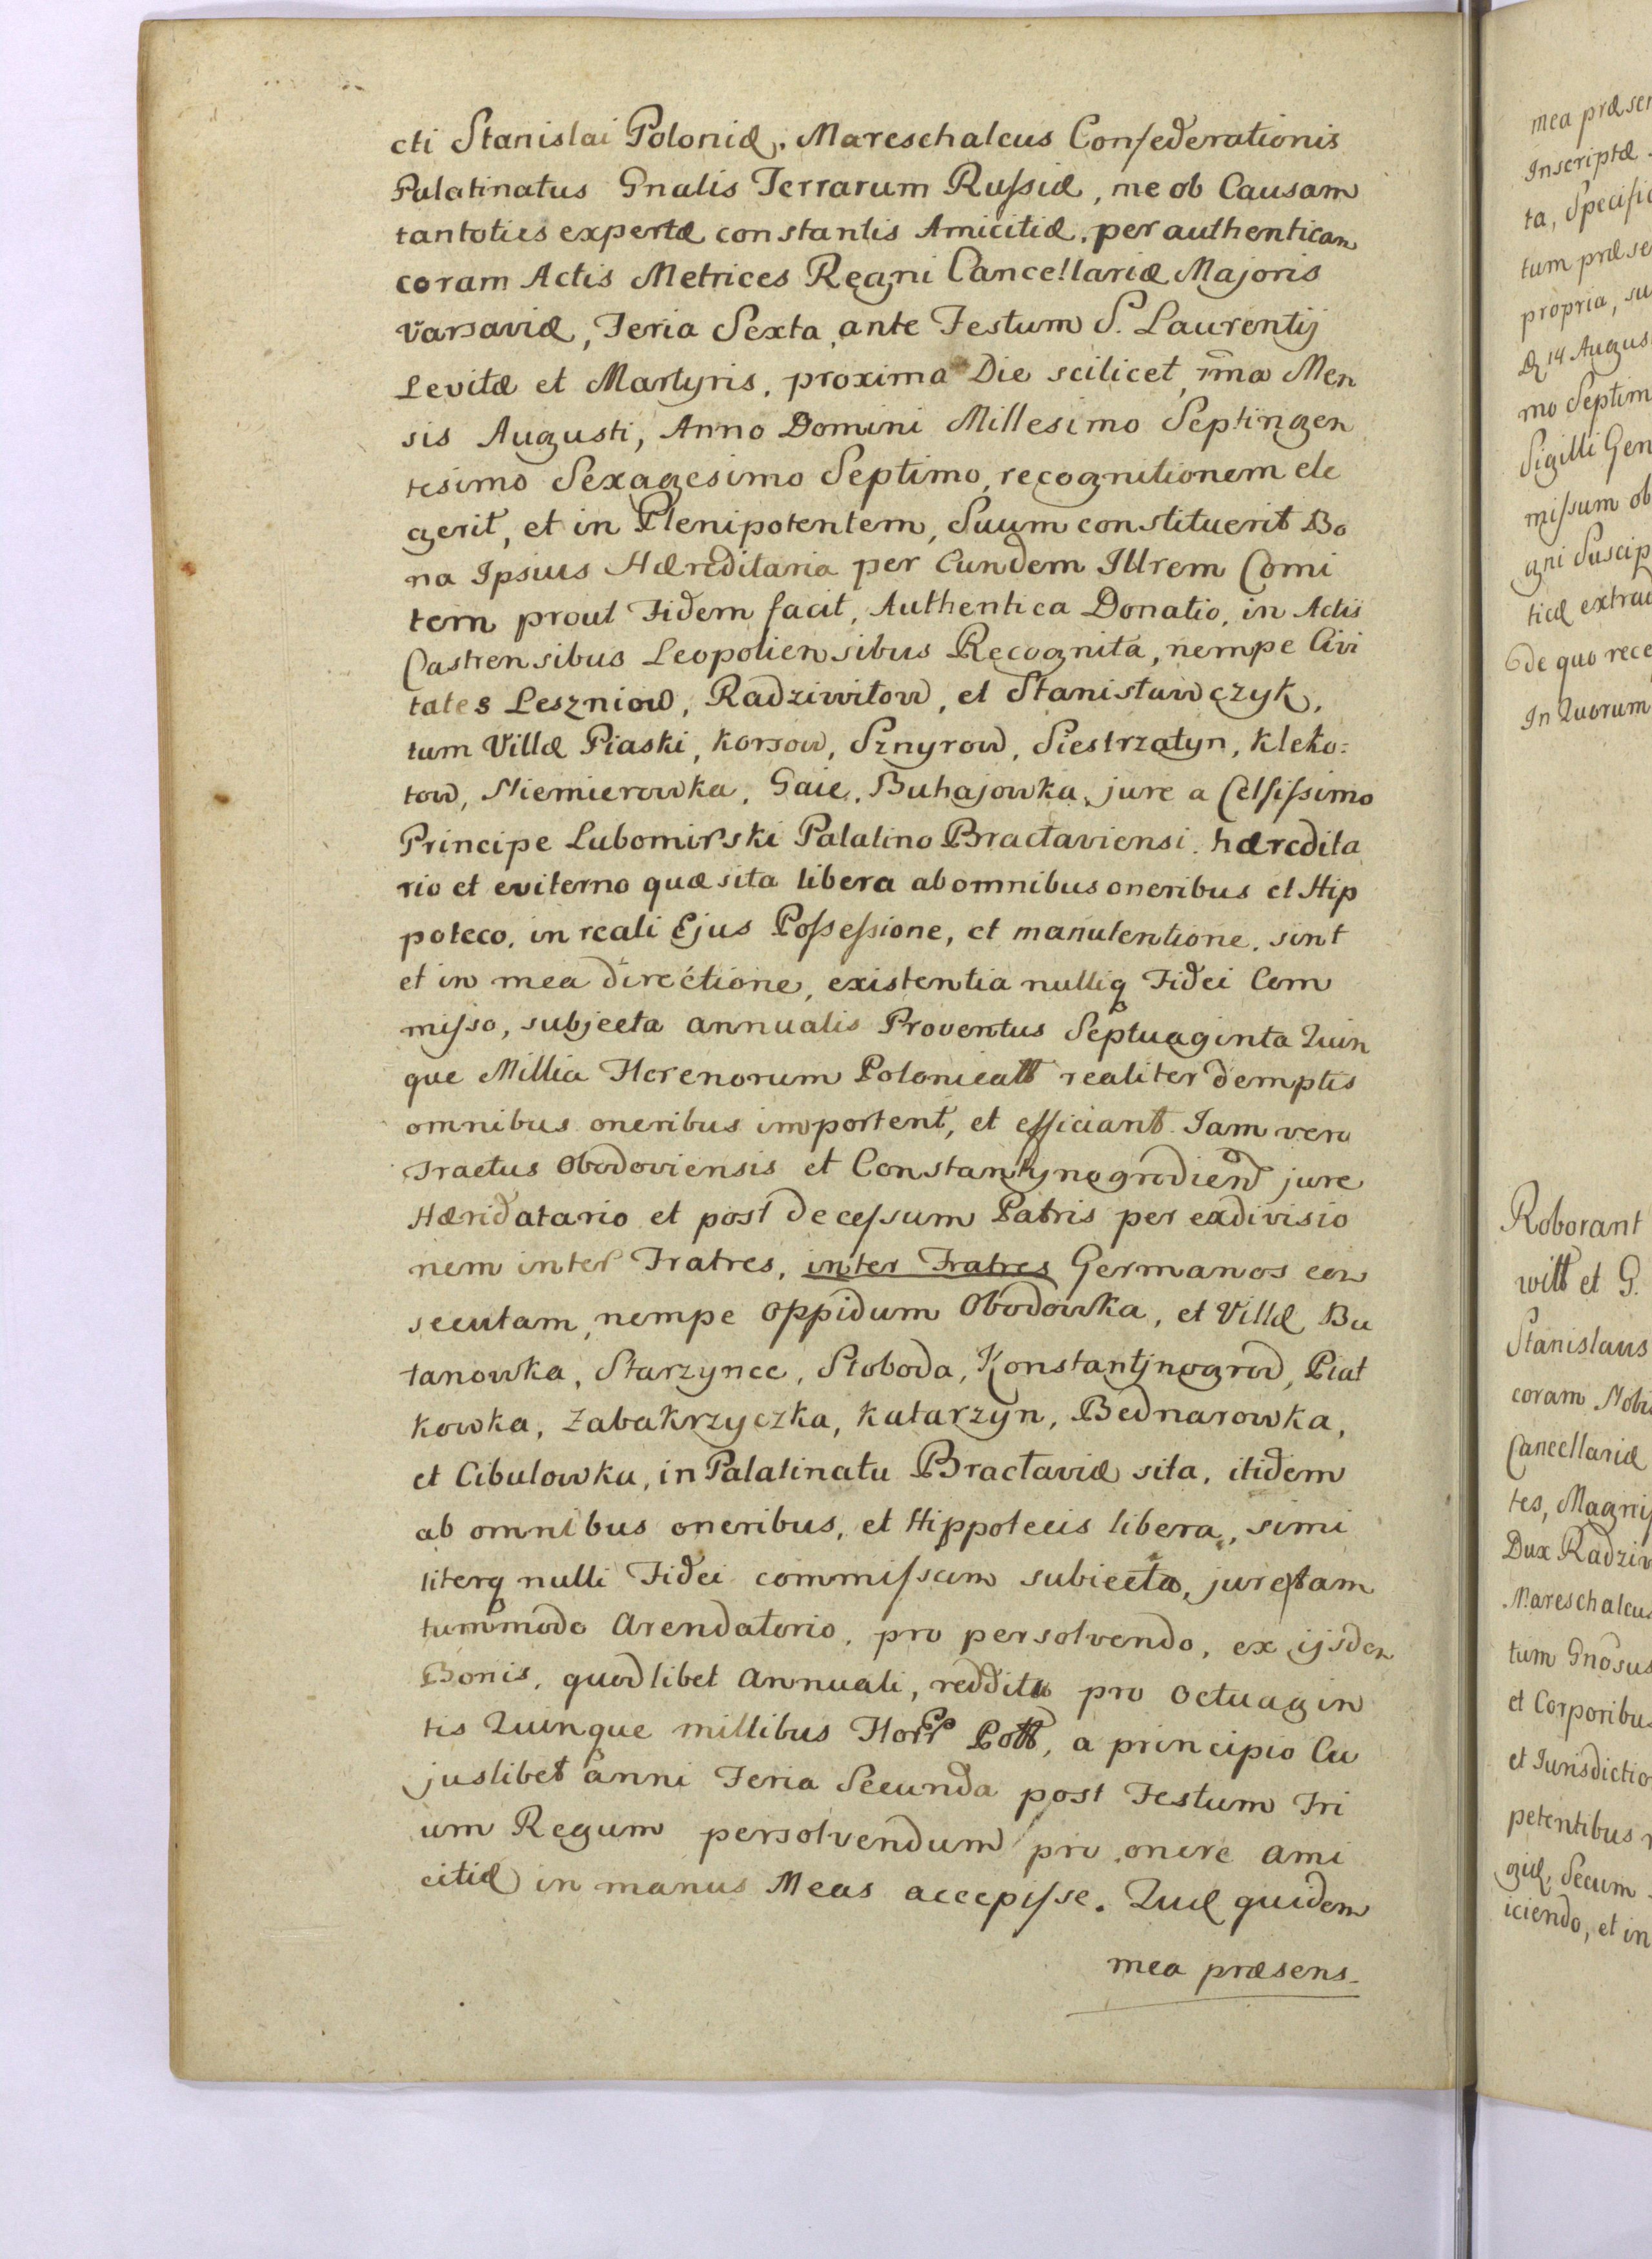 cti Stanislai Poloniæ, Mareschalcus Confederationis
Palatinatus Gnalis Terrarum Russiæ, me ob Causam
tantoties expertæ constantis Amicitiæ, per authenticam
coram Actis Metrices Regni Cancellariæ Majoris
Varsaviæ, Feria Sexta, ante Festum S. Laurentij
Levitæ et Martyris, proxima Die scilicet, Men
sis Augusti, Anno Domini Millesimo Septingen
tesimo Sexagesimo Septimo, recognitionem ele
gerit, et in Plenipotentem, Suum constituerit Bo
na Ipsius Hæreditaria per Eundem Illrem Comi
tem prout Fidem facit, Authentica Donatio, in Actis
Castrensibus Leopoliensibus Recognita, nempe Civi
tates Leszniow, Radziwiłow, et Stanisławczyk,
tum Villæ Piaski, Korsow, Sznyrow, Siestrzatyn, Kleko=
tow, Niemierowka, Gaie, Buhajowka, jure a Celsissimo
Principe Lubomirski Palatino Bracłaviensi hæredita
rio et eviterno quæsita libera ab omnibus oneribus et Hip
poteco, in reali Ejus Possessione, et manutentione, sint
et in mea directione, existentia nulliq Fidei Com
misso, subjecta annualis Proventus Septuaginta Quin
que Millia Florenorum Polonicatt realiter demptis
omnibus oneribus importent, et efficiant. Iam vero
Tractus Obodoviensis et Constantynogrodiens jure
Hæridatario et post decessum Patris per exdivisio
nem inter Fratres, inter Fratres Germanos con
secutam, nempe Oppidum Obodowka, et Villæ Bu
tanowka, Starzynce, Słoboda, Konstantynogrod, Piat
kowka, Zabakrzyczka, Katarzyn, Bednarowka,
et Cibulowka, in Palatinatu Bracłaviæ sita, itidem
ab omnibus oneribus, et Hippotecis libera, simi
literq nulli Fidei commissum subiecta, jure tam
tummodo Arendatorio, pro persolvendo, ex ijsdem
Bonis, quodlibet Annuali, redditu pro Octuagin
tis Quinque millibus Flor Poll, a principio Cu
juslibet anni Feria Secunda post Festum Tri
um Regum persolvendum pro onere ami
citiæ in manus Meas accepisse. Quæ quidem
mea præsens
mea præsen
Inscriptæ
ta, Specific
tum præse
propria, su
14 Augus
mo Septim
Sigilli Gen
missum ob
gni Suscip
ticæ extrad
de quo rece
In Quorum
Roborant
witt et G.
Stanislaus
coram Nobi
Cancellariæ
tes, Magnif
Dux Radziw
Mareschalcus
tum Gnosus
et Corporibus
et Iurisdictio
petentibus
giæ, Secum
iciendo, et in